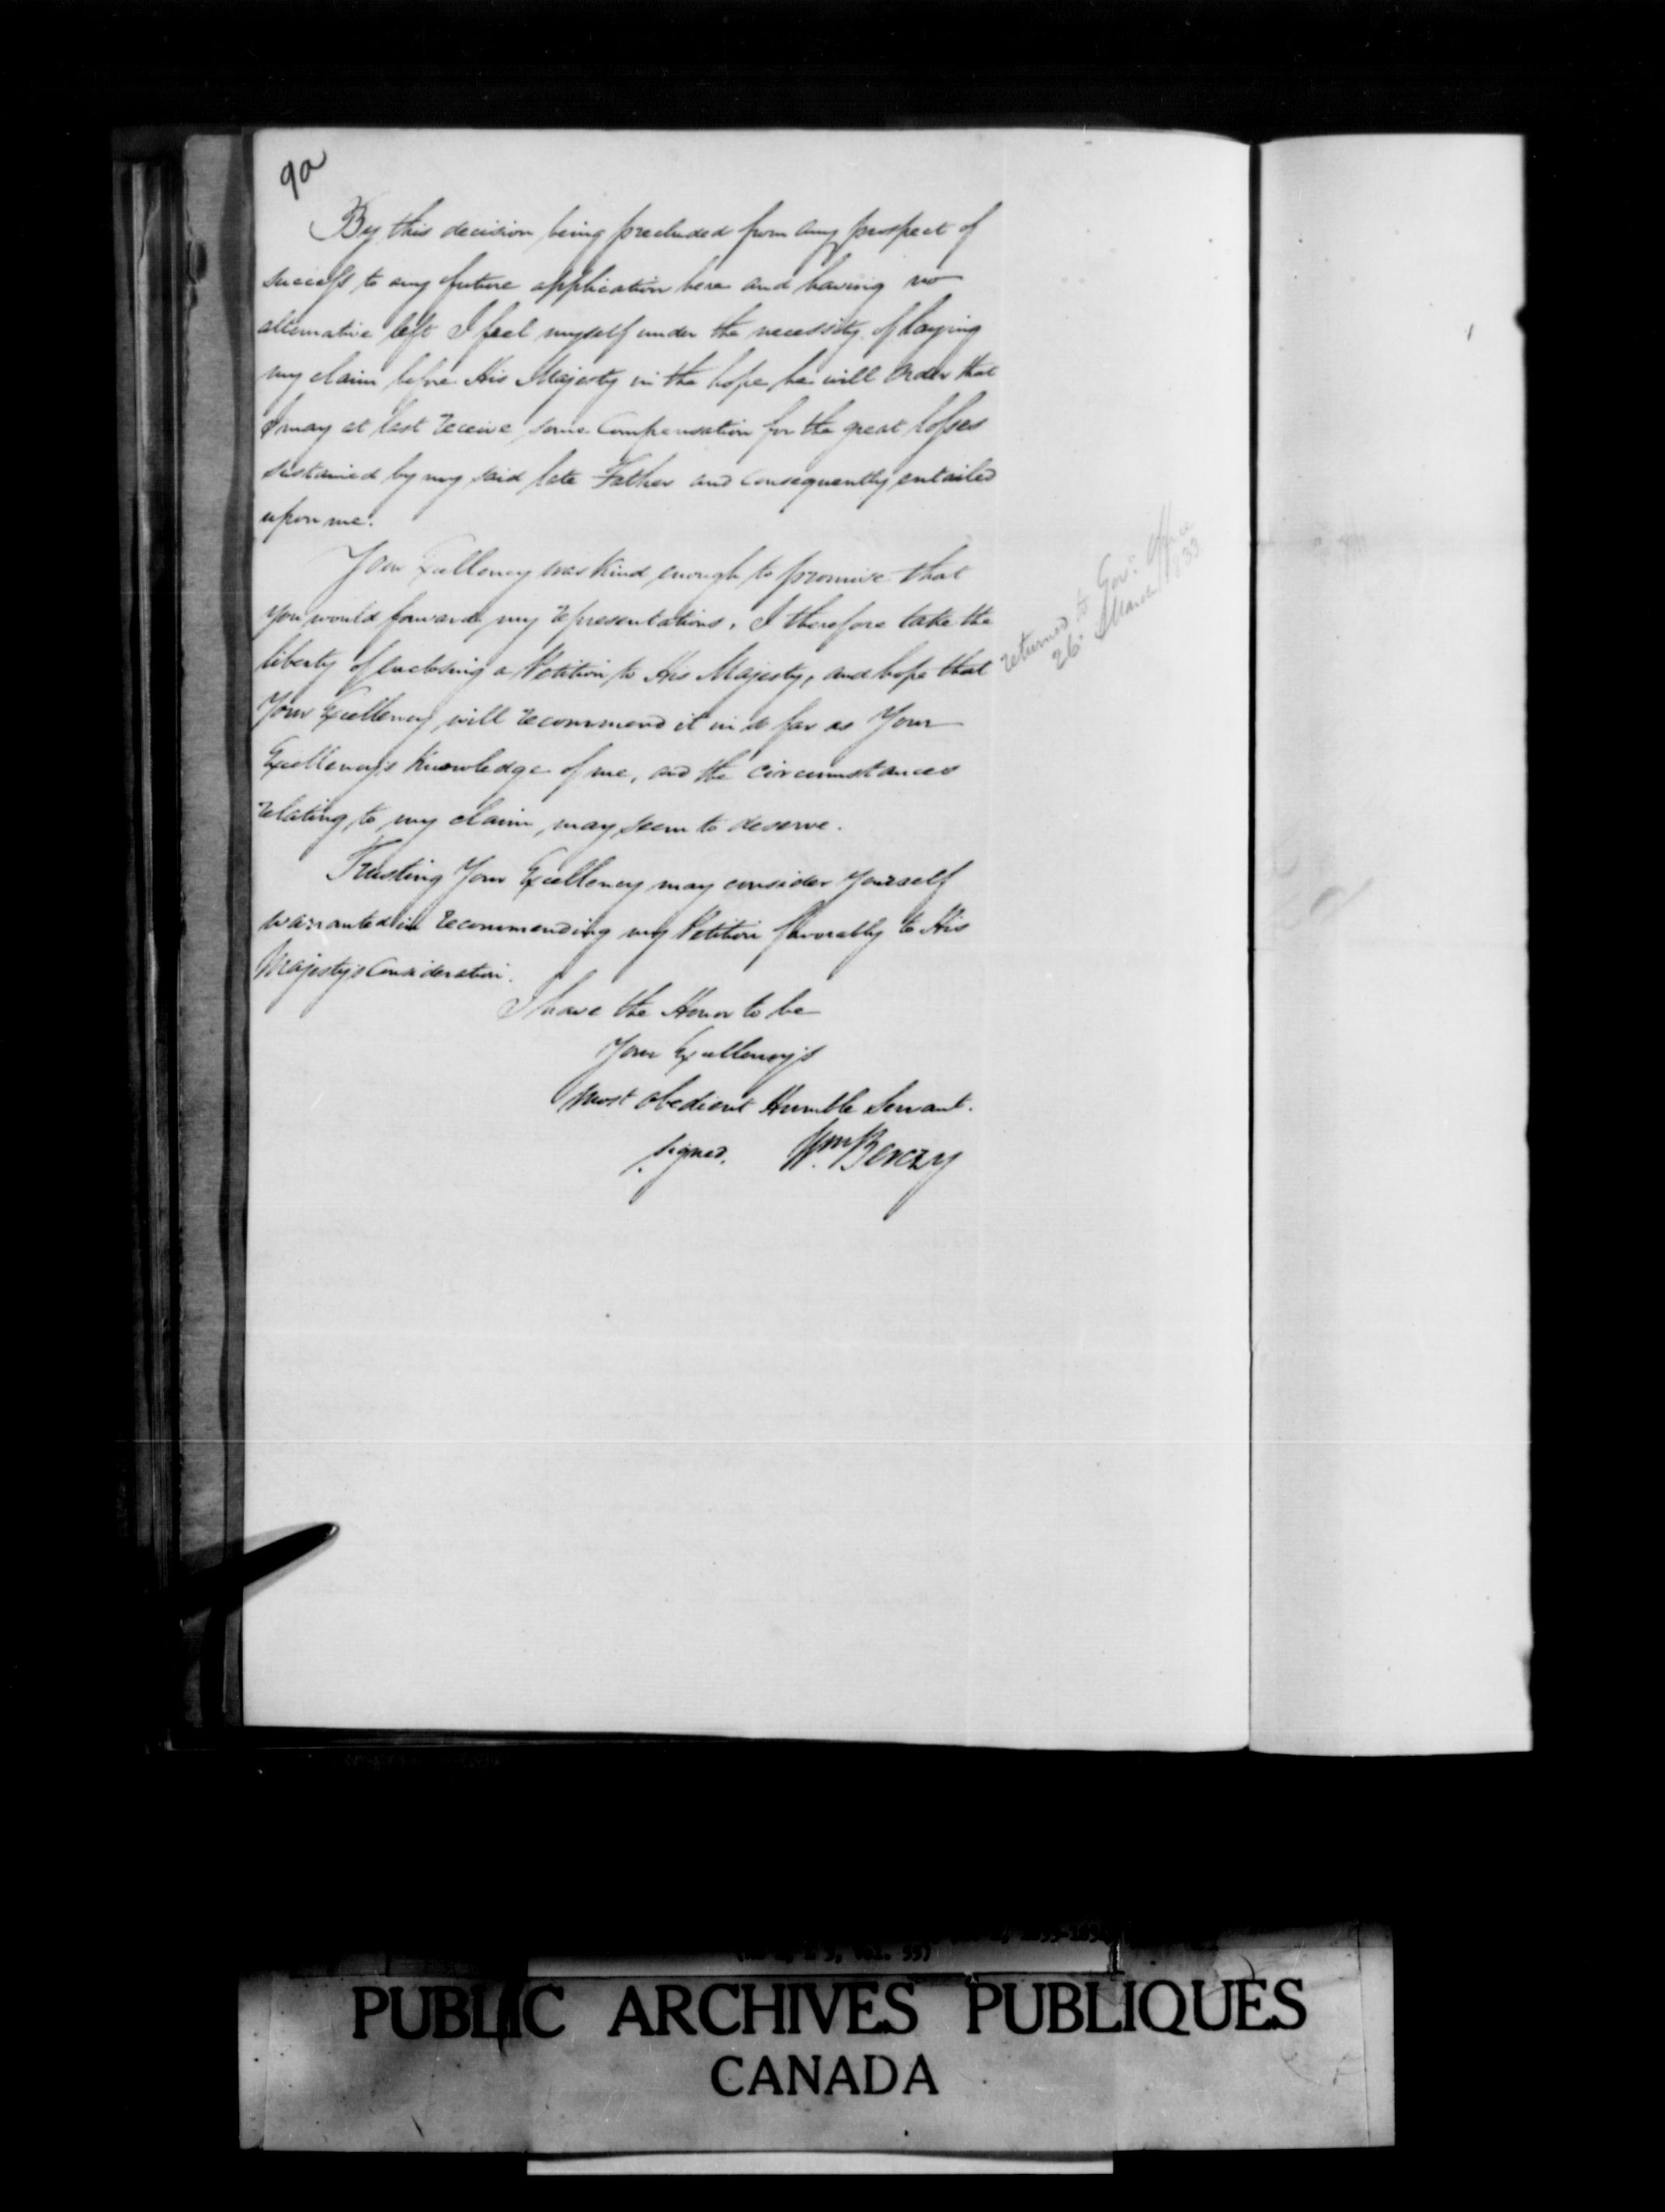 9a
By this decision being precluded from any prospect of
success to any future application here and having no
alternative left I feel myself under the necessity of laying
my claim before His Majesty in the hope he will order that
I may at last receive some Compensation for the great losses
sustained by my said late Father and Consequently entailed
upon me.
Your Excellency was kind enough to promise that
you would forward my representations. I therefore take the
liberty of enclosing a Petition to His Majesty, and hope that
Your Excellency will recommend it in so far as Your
Excellency's knowledge of me, and the circumstances
relating to my claim may seem to deserve.
Trusting Your Excellency may consider yourself
warranted in recommending my Petition favorably to His
Majesty's Consideration.
I have the Honor to be
Your Excellency's
Most obedient Humble Servant.
signed. Wm Berczy
returned to Govr. Office
26. March 1833
PUBLIC ARCHIVES PUBLIQUES
CANADA